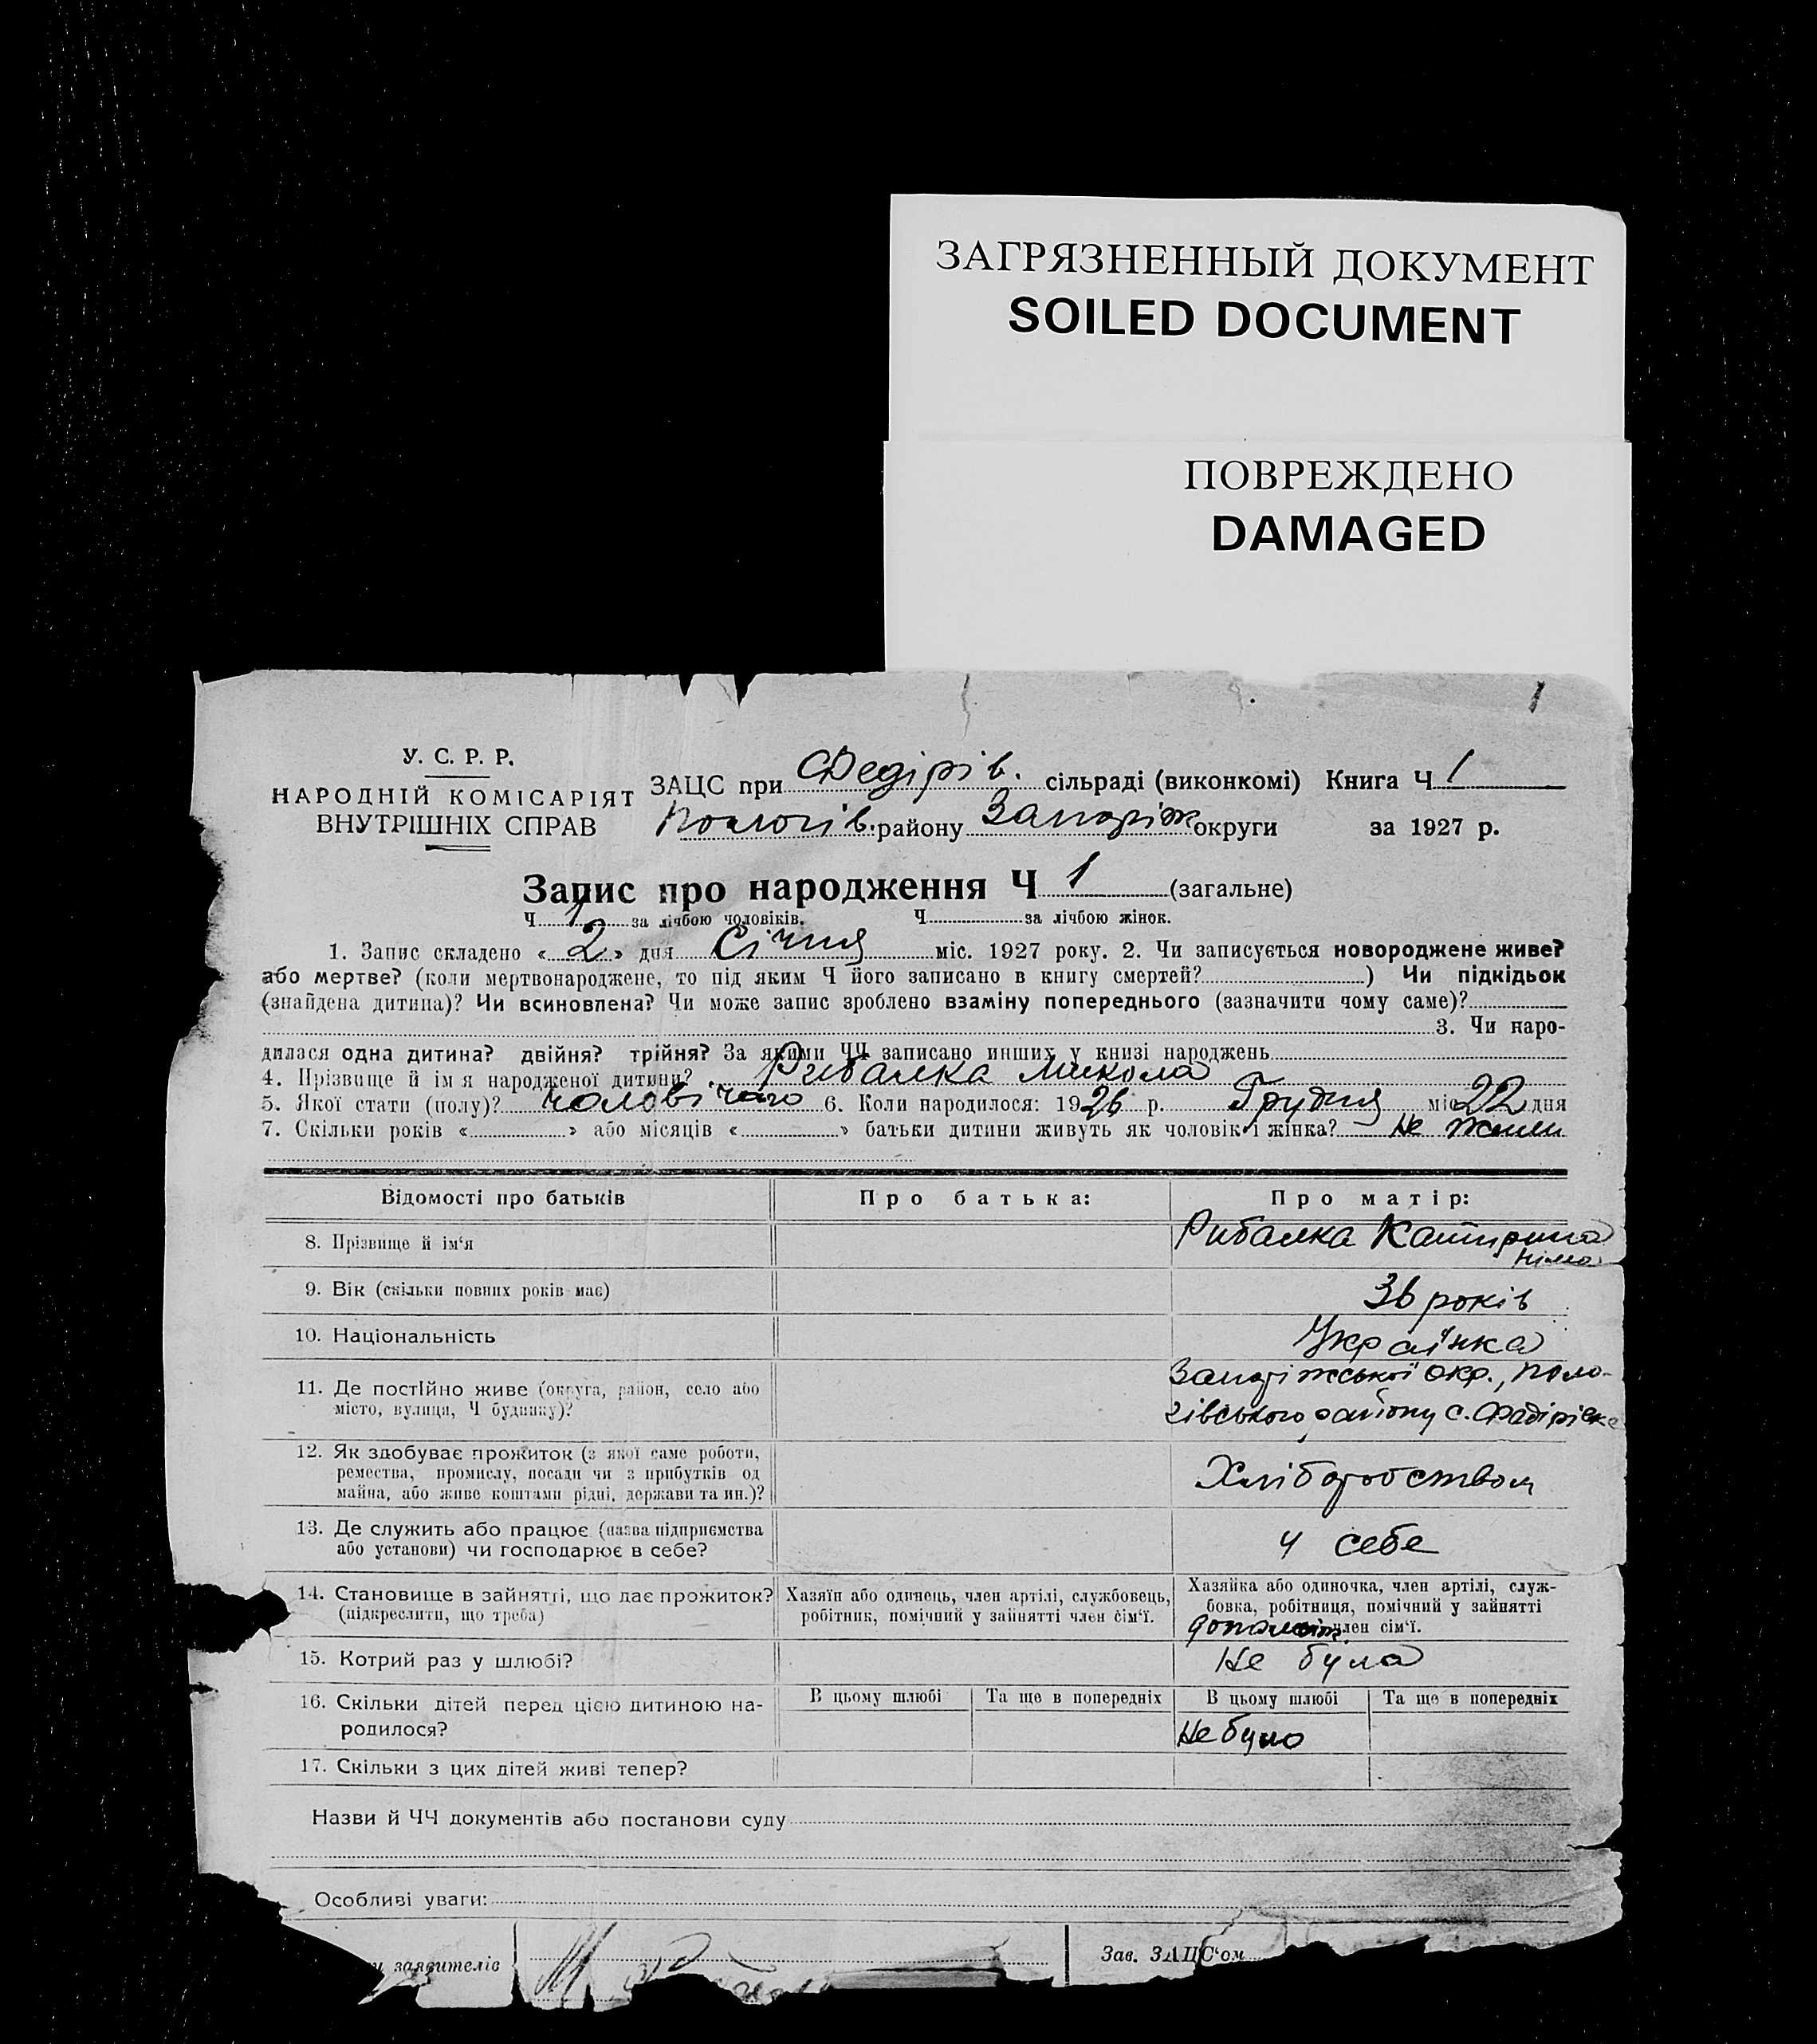 ЗАГРЯЗНЕННЫЙ ДОКУМЕНТ
SOILED DOCUMENT
ПОВРЕЖДЕНО
DAMAGED
1
У. С. Р. Р.
НАРОДНІЙ КОМІСАРІЯТ
ВНУТРІШНІХ СПРАВ
ЗАЦС при Федірів. сільраді (виконкомі) Книга Ч 1
Пологів. району Запоріж округи за 1927 р.
Запис про народження Ч 1 (загальне)
Ч 1 за лічбою чоловіків. Ч за лічбою жінок.
1. Запис складено « 2 » дня Січня міс. 1927 року. 2. Чи записується новороджене живе?
або мертве? (коли мертвонароджене, то під яким Ч його записано в книгу смертей? ) Чи підкідьок
(знайдена дитина)? Чи всиновлена? Чи може запис зроблено взаміну попереднього (зазначити чому саме)?
3. Чи наро-
дилася одна дитина? двійня? трійня? За якими ЧЧ записано инших у книзі народжень
4. Прізвище й ім я народженої дитини? Рибалка Микола
5. Якої стати (полу)? чоловічого 6. Коли народилося: 1926 р. Грудня міс 22 дня
7. Скільки років « » або місяців « » батьки дитини живуть як чоловік і жінка? Не жили
Відомості про батьків Про батька: Про матір:
8. Прізвище й ім‘я Рибалка Катирина
9. Вік (скільки повних років має) 36 років
10. Національність Українка
11. Де постійно живе (округа, район, село або місто, вулиця, Ч будинку)?
Запоріжської окр., Поло-
гівського району с. Федірівка
12. Як здобуває прожиток (з якої саме роботи,
ремества, промислу, посади чи з прибутків од
майна, або живе коштами рідні, держави та ин.)?
Хліборобством
13. Де служить або працює (назва підприємства
або установи) чи господарює в себе?
У себе
14. Становище в зайнятті, що дає прожиток?
(підкреслити, що треба)
Хазяїн або одинець, член артілі, службовець,
робітник, помічний у зайнятті член сім‘ї.
Хазяйка або одиночка, член артілі, служ-
бовка, робітниця, помічний у зайнятті
член сім‘ї.
15. Котрий раз у шлюбі? Не була
16. Скільки дітей перед цією дитиною на-
родилося?
В цьому шлюбі Та ще в попередніх В цьому шлюбі Та ще в попередніх
Не було
17. Скільки з цих дітей живі тепер?
Назви й ЧЧ документів або постанови суду
Особливі уваги:
заявителів
Зав. ЗАЦС‘ом